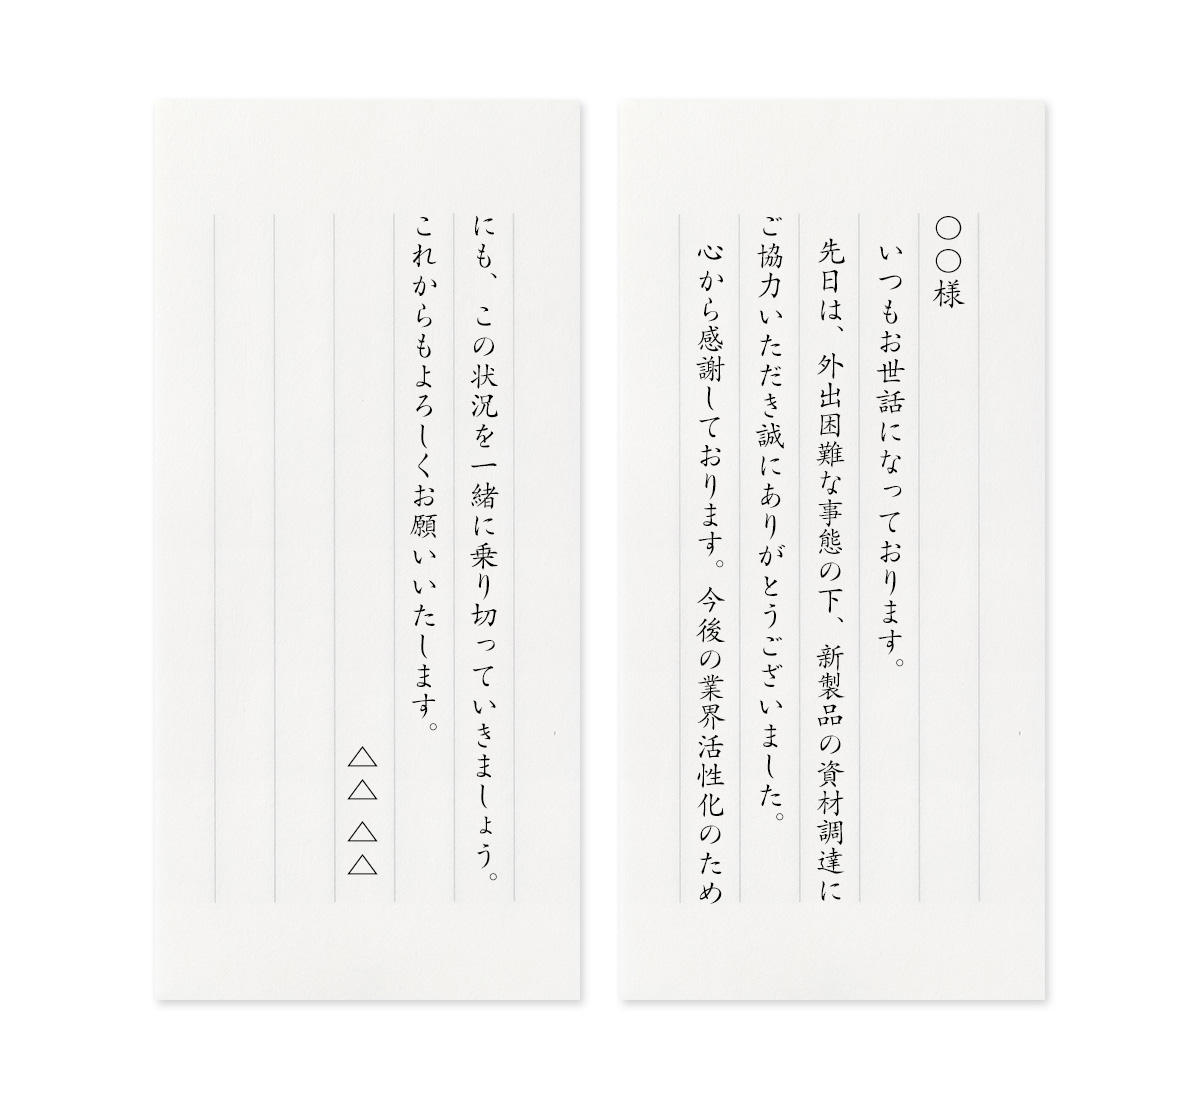 ○○様
いつもお世話になっております。
先日は、外出困難な事態の下、新製品の資材調達に
ご協力いただき誠にありがとうございました。
心から感謝しております。今後の業界活性化のため
にも、この状況を一緒に乗り切っていきましょう。
これからもよろしくお願いいたします。
△△ △△